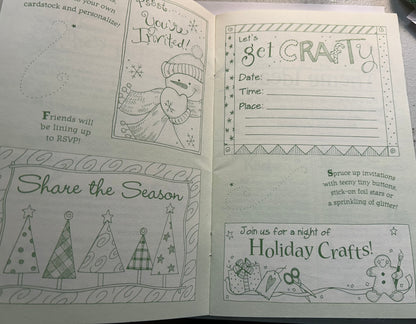 to your own
cardstock and personalize!
Friends will
be lining up
to RSVP!
Pssst...
You're
Invited!
Share the Season
Let's
get CRAFTY
Date:
Time:
Place:
Spruce up invitations
with teeny tiny buttons,
stick-on foil stars or
a sprinkling of glitter!
Join us for a night of
Holiday Crafts!